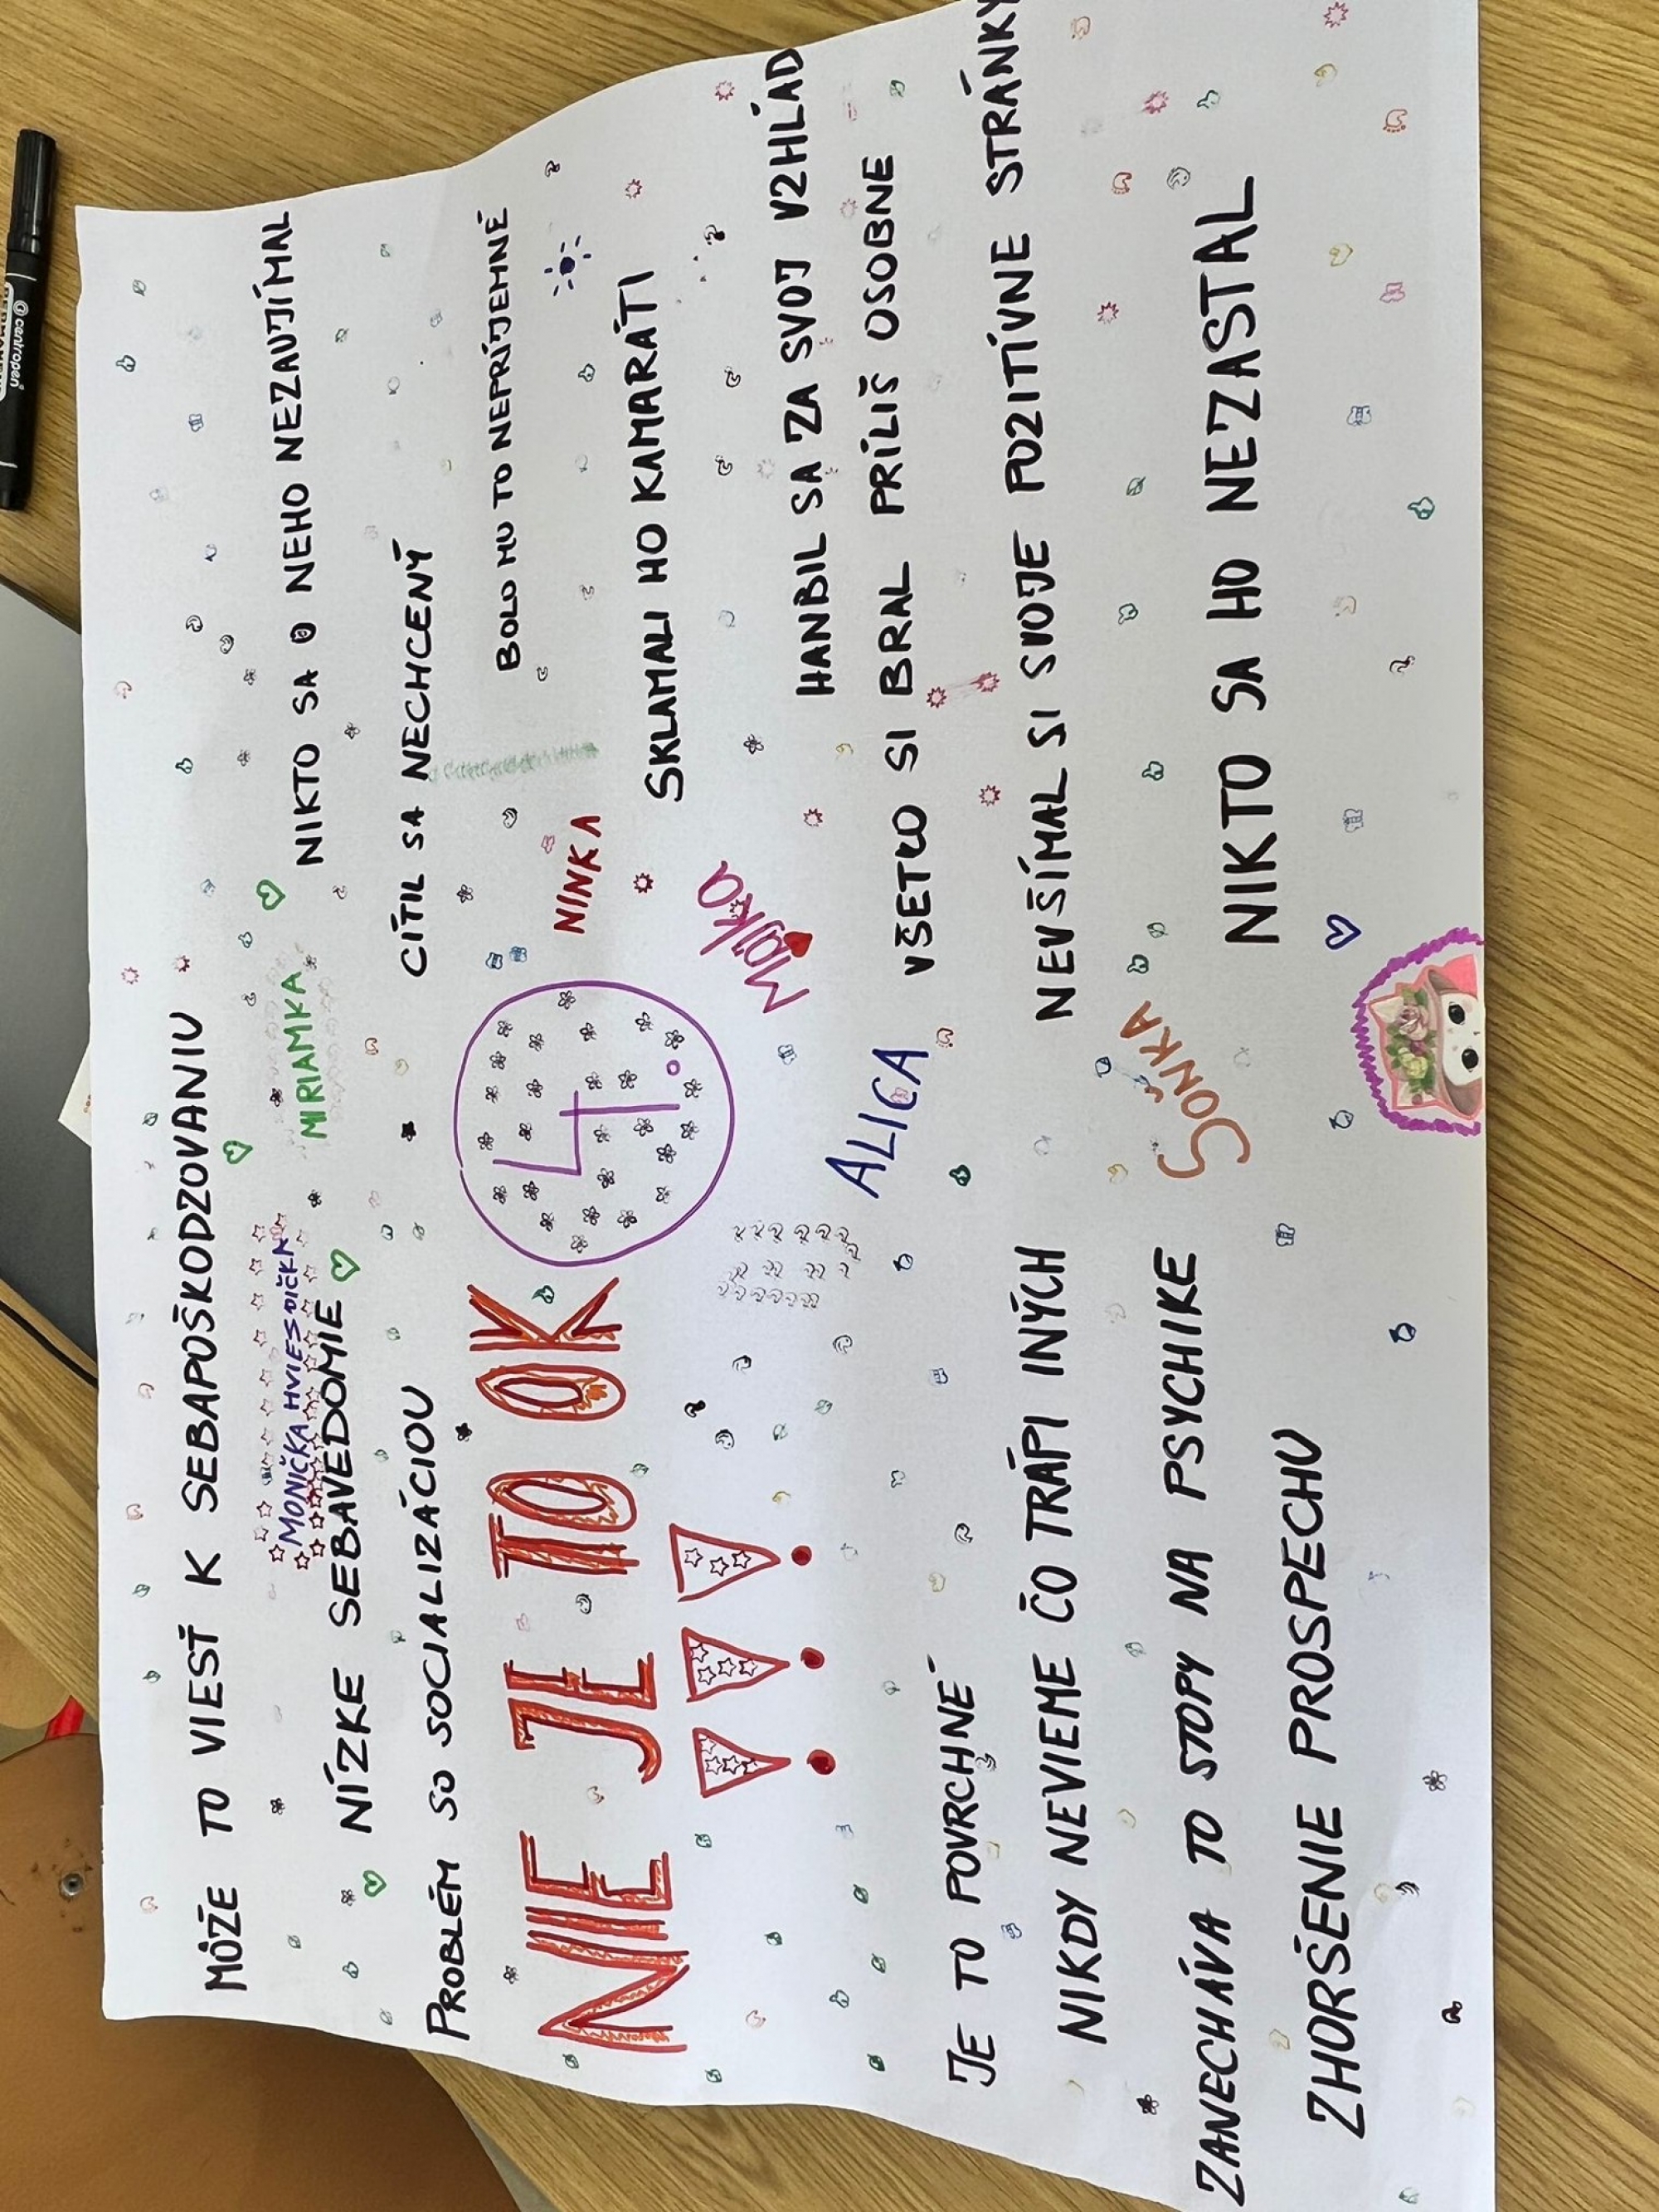 MÔŽE TO VIESŤ K SEBAPOŠKODZOVANIU
MONIČKA HVIESDIČKA
NÍZKE SEBAVEDOMIE
PROBLÉM SO SOCIALIZÁCIOU
NIE JE TO OK
!!!
JE TO POVRCHNÉ
NIKDY NEVIEME ČO TRÁPI INÝCH
ZANECHÁVA TO STOPY NA PSYCHIKE
ZHORŠENIE PROSPECHU
MIRIAMKA
4.
NINKA
Majka
ALICA
SOŇKA
NIKTO SA O NEHO NEZAUJÍMAL
CÍTIL SA NECHCENÝ
BOLO MU TO NEPRÍJEMNÉ
SKLAMALI HO KAMARÁTI
HANBIL SA ZA SVOJ VZHĽAD
VŠETKO SI BRAL PRÍLIŠ OSOBNE
NEVŠÍMAL SI SVOJE POZITÍVNE STRÁNKY
NIKTO SA HO NEZASTAL
centropen